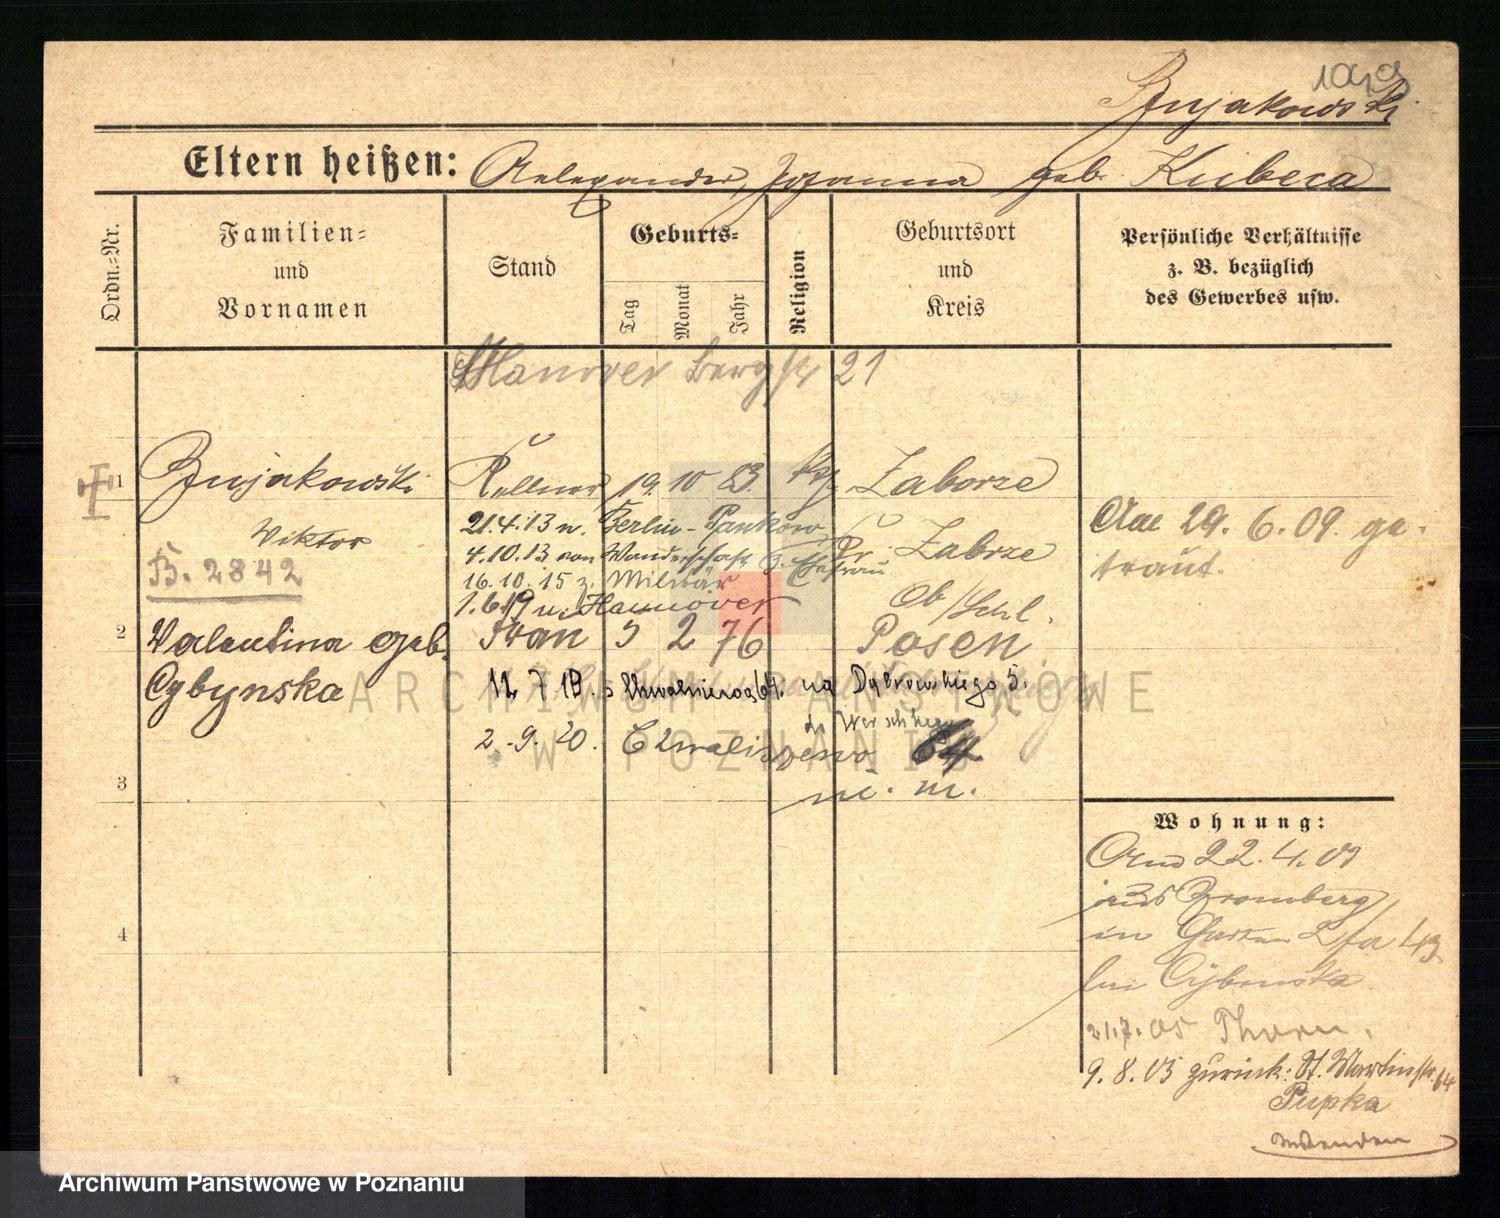 Bujakowski
Eltern heißen: Alexander, Johanna geb. Kubeca
Ordn.-Nr.
Familien-
und
Vornamen
Stand
Geburts-
Tag
Monat
Jahr
Religion
Geburtsort
und
Kreis
Persönliche Verhältnisse
z. B. bezüglich
des Gewerbes usw.
Hannover Bergstr 21
1 Bujakowski Kellner 19. 10 83. Zaborze
Viktor
B. 2842
21.4.13 n. Berlin-Pankow
4.10.13 von Wanderschaft z. Ehefrau
16.10.15 z. Militär
1.6.19 n. Hannover
Kr. Zabrze
Ob/Schl.
Am 29. 6. 09. ge-
traut.
2 Valentina geb. Frau 5 2 76 Posen
Cybynska
12. 7. 19. Chwaliszewo 64. na Dąbrowskiego 5.
2.-9. 20. Chwaliszewo 64
m. m.
3
4
Wohnung:
22. 4. 05
aus Bromberg
in Garten 43
bei Cybinska
21.7.05 Thorn.
9. 8. 05 zurück: St. Martinstr. 64
Pupka
wenden
ARCHIWUM PAŃSTWOWE
W POZNANIU
Archiwum Państwowe w Poznaniu